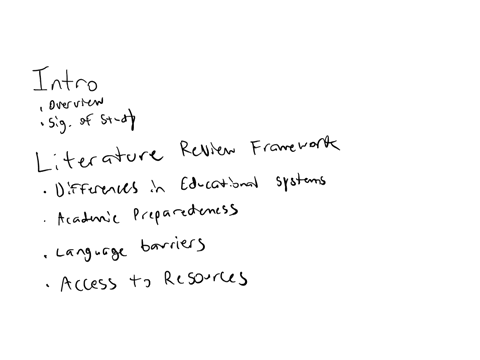 Intro
• Overview
• Sig. of Study
Literature Review Framework
• Differences in Educational Systems
• Academic Preparedness
• Language barriers
• Access to Resources